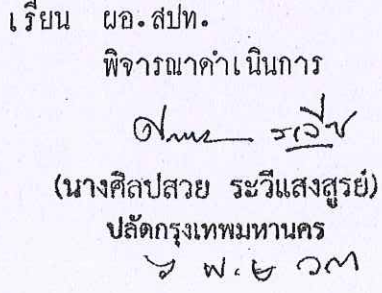 เรียน ผอ.สปท.
พิจารณาดำเนินการ
(นางศิลปสวย ระวีแสงสูรย์)
ปลัดกรุงเทพมหานคร
๖ พ.ย ๖๓